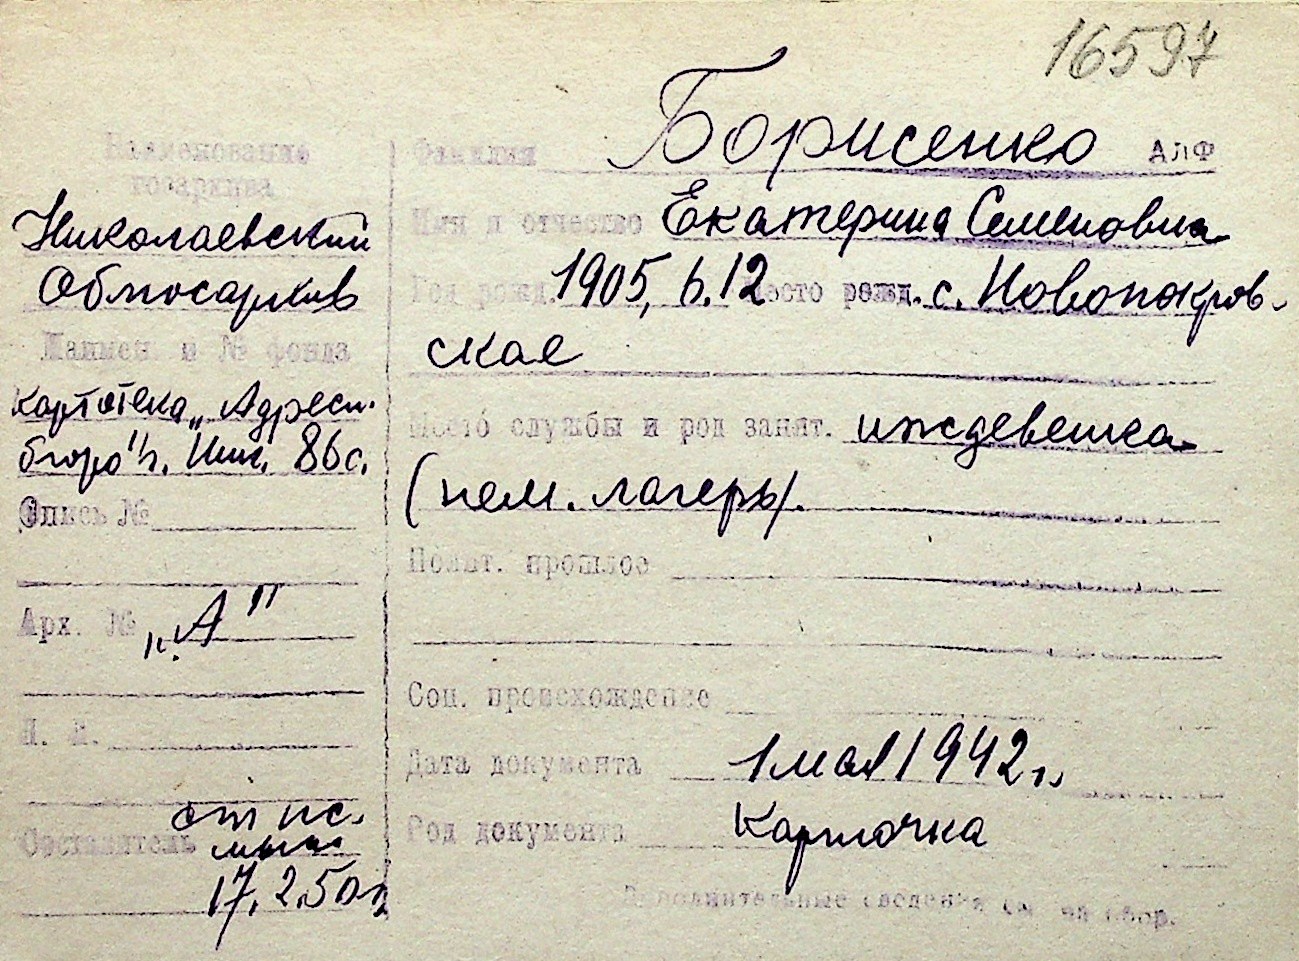 16597
Наименование
госархива
Николаевский
Облгосархив
Наимен. и № фонда
картотека „Адресн.
бюро" г. Ник. 86 с.
Опись №
Арх. № „А"
Л. Л.
Составитель
17.2.50 г.
Фамилия Борисенко АлФ
Имя и отчество Екатерина Семеновна
Год рожд. 1905, 6.12 Место рожд. с. Новопокров-
ское
Место службы и род занят. иждевенка
(нем. лагерь).
Полит. прошлое
Соц. происхождение
Дата документа 1 мая 1942 г.
Род документа Карточка
Дополнительные сведения см. на обор.